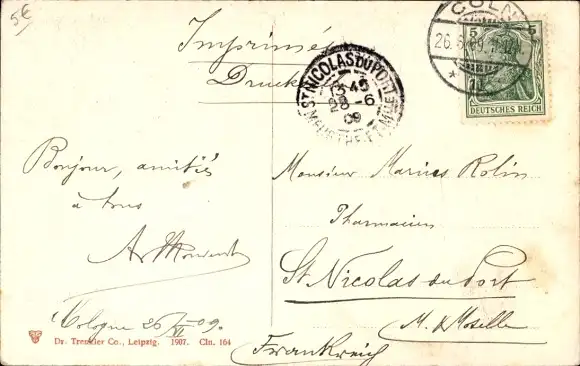 5€
Imprimé
Drucks
CÖLN
26.6.09
1d
5 5
DEUTSCHES REICH
ST NICOLAS DU PORT
13 45
28 -6
09
MEURTHE ET MLLE
Bonjour, amitiés
à tous
Cologne 26/VI 09.
Monsieur Marius Rolin
Pharmacien
St Nicolas du Port
M. & Moselle
Frankreich
Dr. Trenkler Co., Leipzig. 1907. Cln. 164